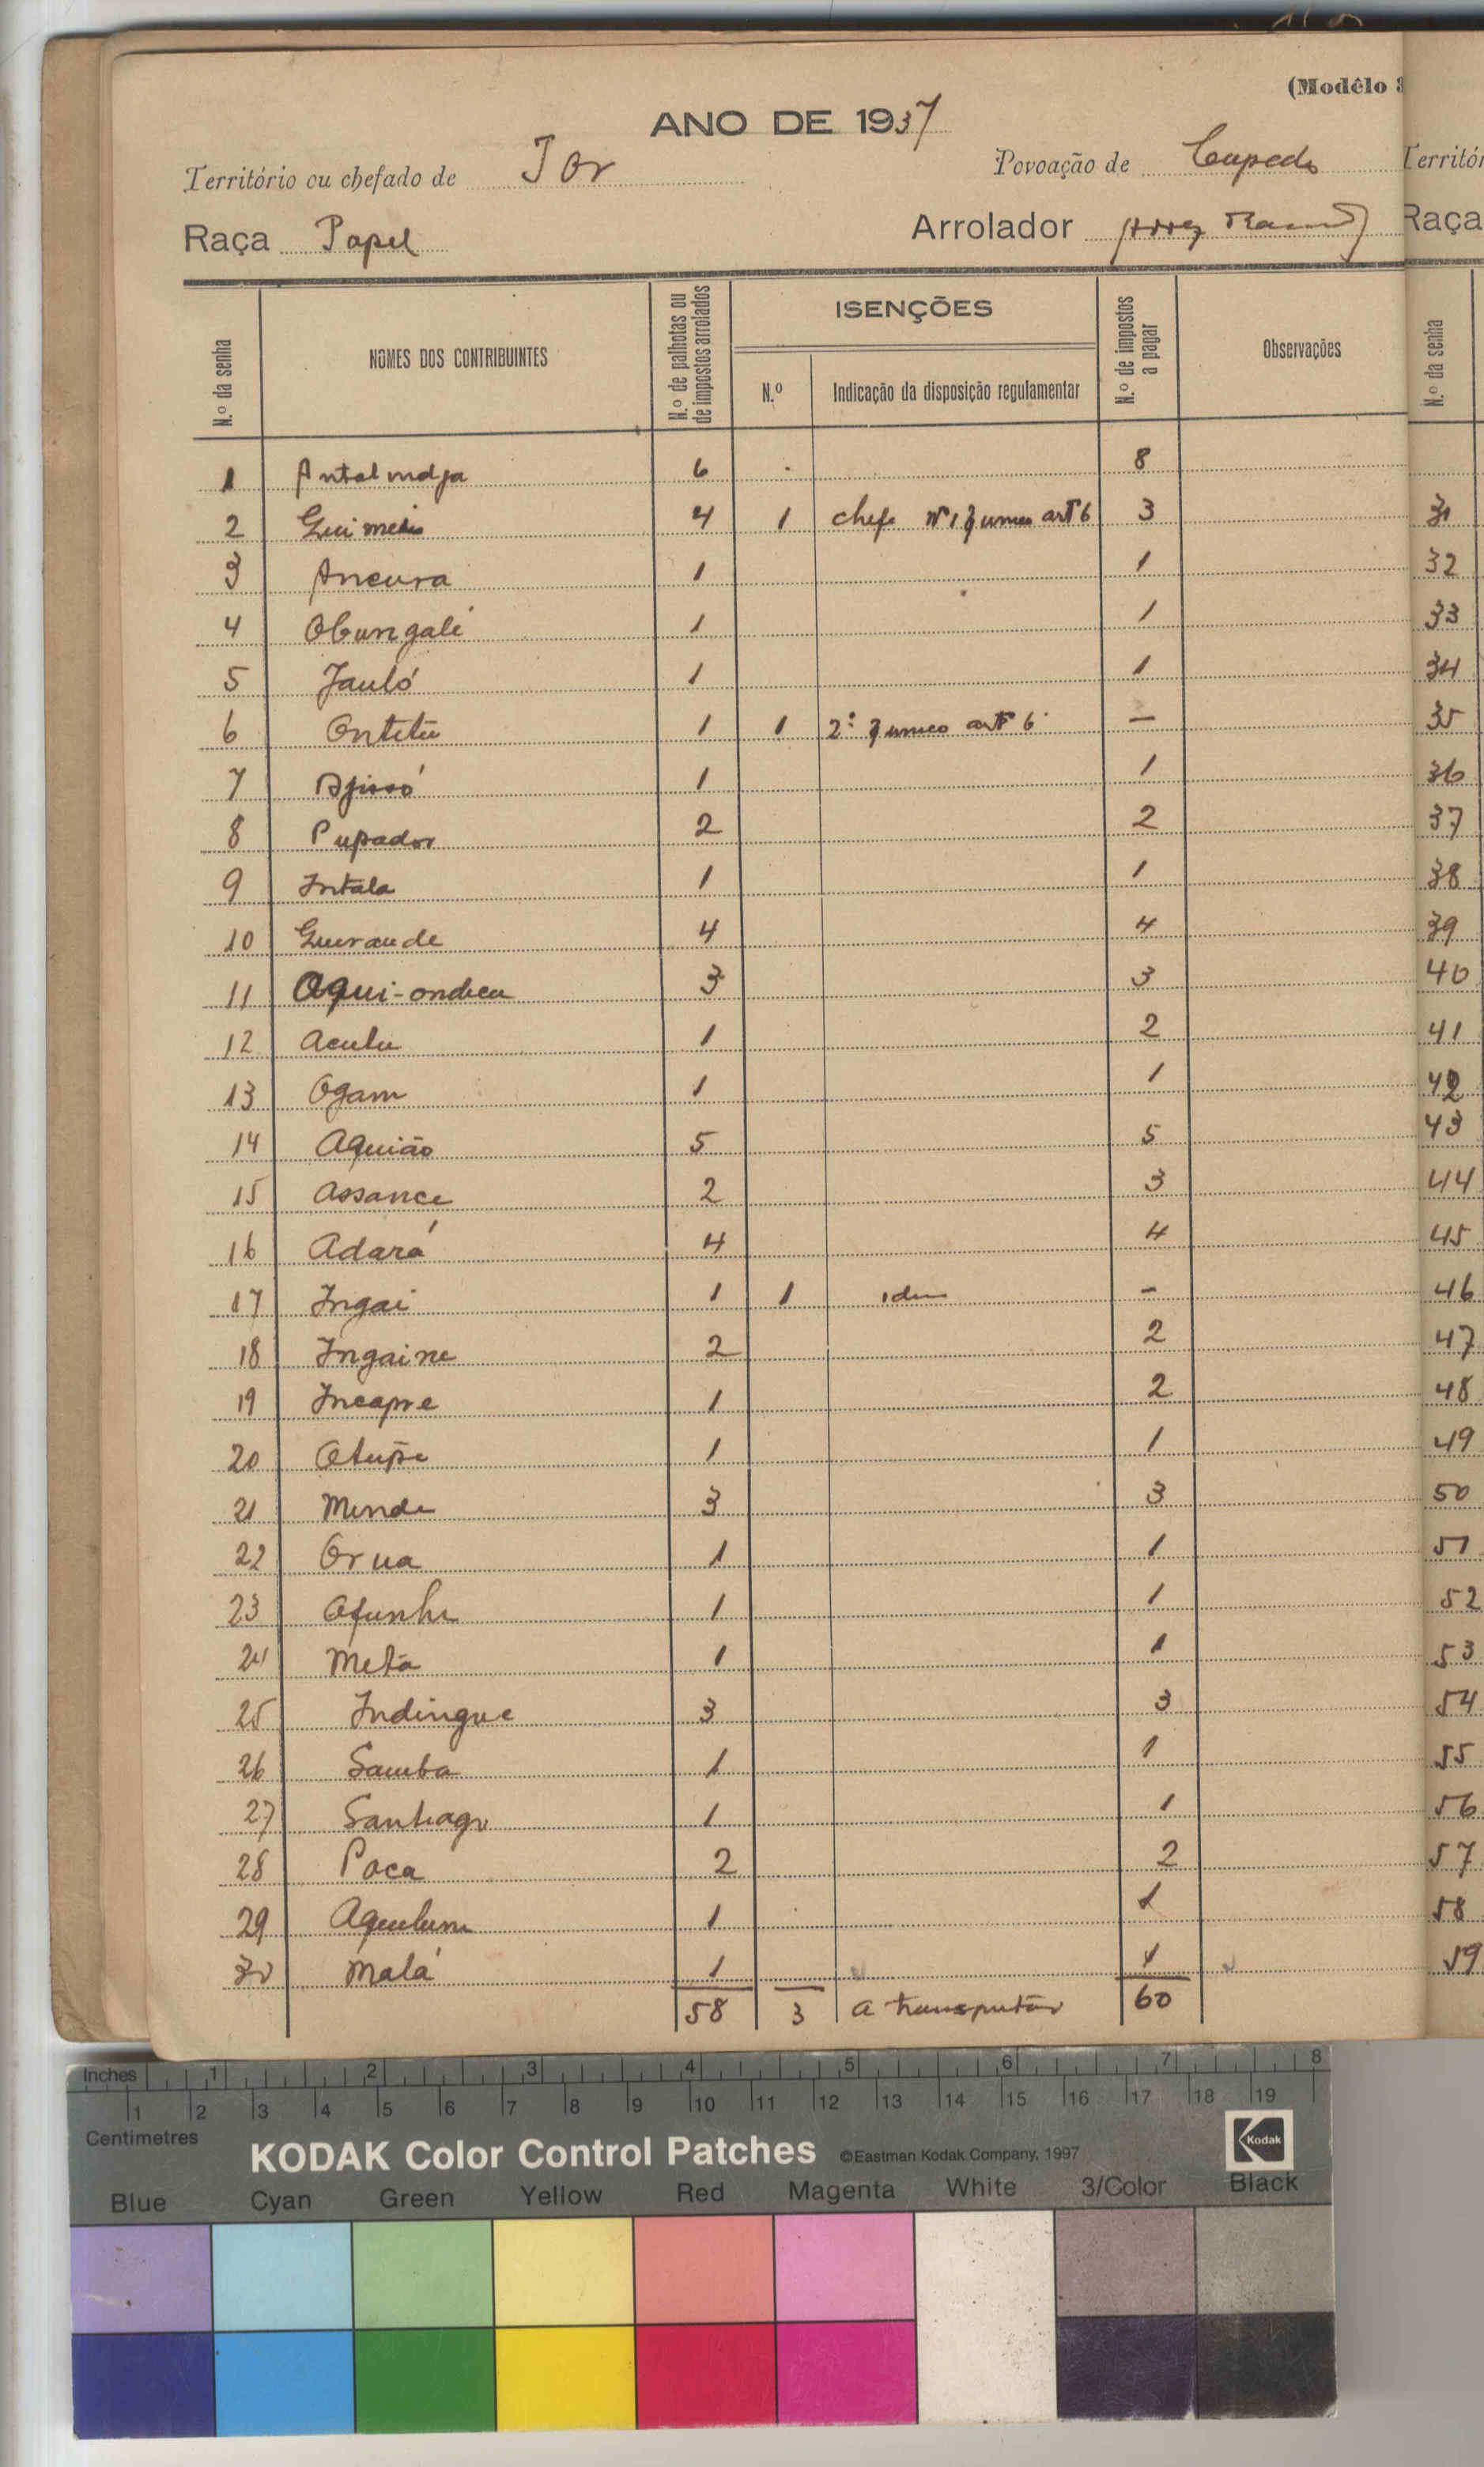 (Modêlo 3
ANO DE 1937
Território ou chefado de Jor Povoação de Cupedo
Raça Papel Arrolador
N.º da senha NOMES DOS CONTRIBUINTES N.º de palhotas ou de impostos arrolados ISENÇÕES N.º de impostos a pagar Observações
N.º Indicação da disposição regulamentar
1 6 8
2 4 1 chefe Nº 1 artº 6 3
3 Ancura 1 1
4 Obungalé 1 1
5 Jauló 1 1
6 1 1 2º artº 6 —
7 1 1
8 Pupador 2 2
9 Intala 1 1
10 4 4
11 3 3
12 Aculu 1 2
13 Ogam 1 1
14 Aquião 5 5
15 Assance 2 3
16 Adará 4 4
17 Ingai 1 1 idem -
18 Ingaine 2 2
19 Incapre 1 2
20 1 1
21 Minde 3 3
22 Orua 1 1
23 1 1
24 Meta 1 1
25 Indingue 3 3
26 Samba 1 1
27 Santiago 1 1
28 Poca 2 2
29 1 1
30 Malá 1 1
58 3 a transportar 60
Territó
Raça
N.º da senha
31
32
33
34
35
36
37
38
39
40
41
42
43
44
45
46
47
48
49
50
51
52
53
54
55
56
57
58
59
Inches 1 2 3 4 5 6 7 8
1 2 3 4 5 6 7 8 9 10 11 12 13 14 15 16 17 18 19
Centimetres
KODAK Color Control Patches ©Eastman Kodak Company, 1997 Kodak
Blue Cyan Green Yellow Red Magenta White 3/Color Black